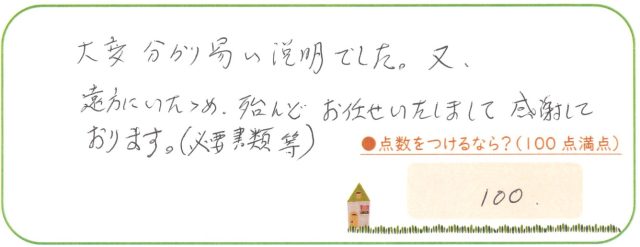 大変分かり易い説明でした。又、
遠方にいたため、殆んどお任せいたしまして感謝して
おります。(必要書類等)
●点数をつけるなら?(100点満点)
100.